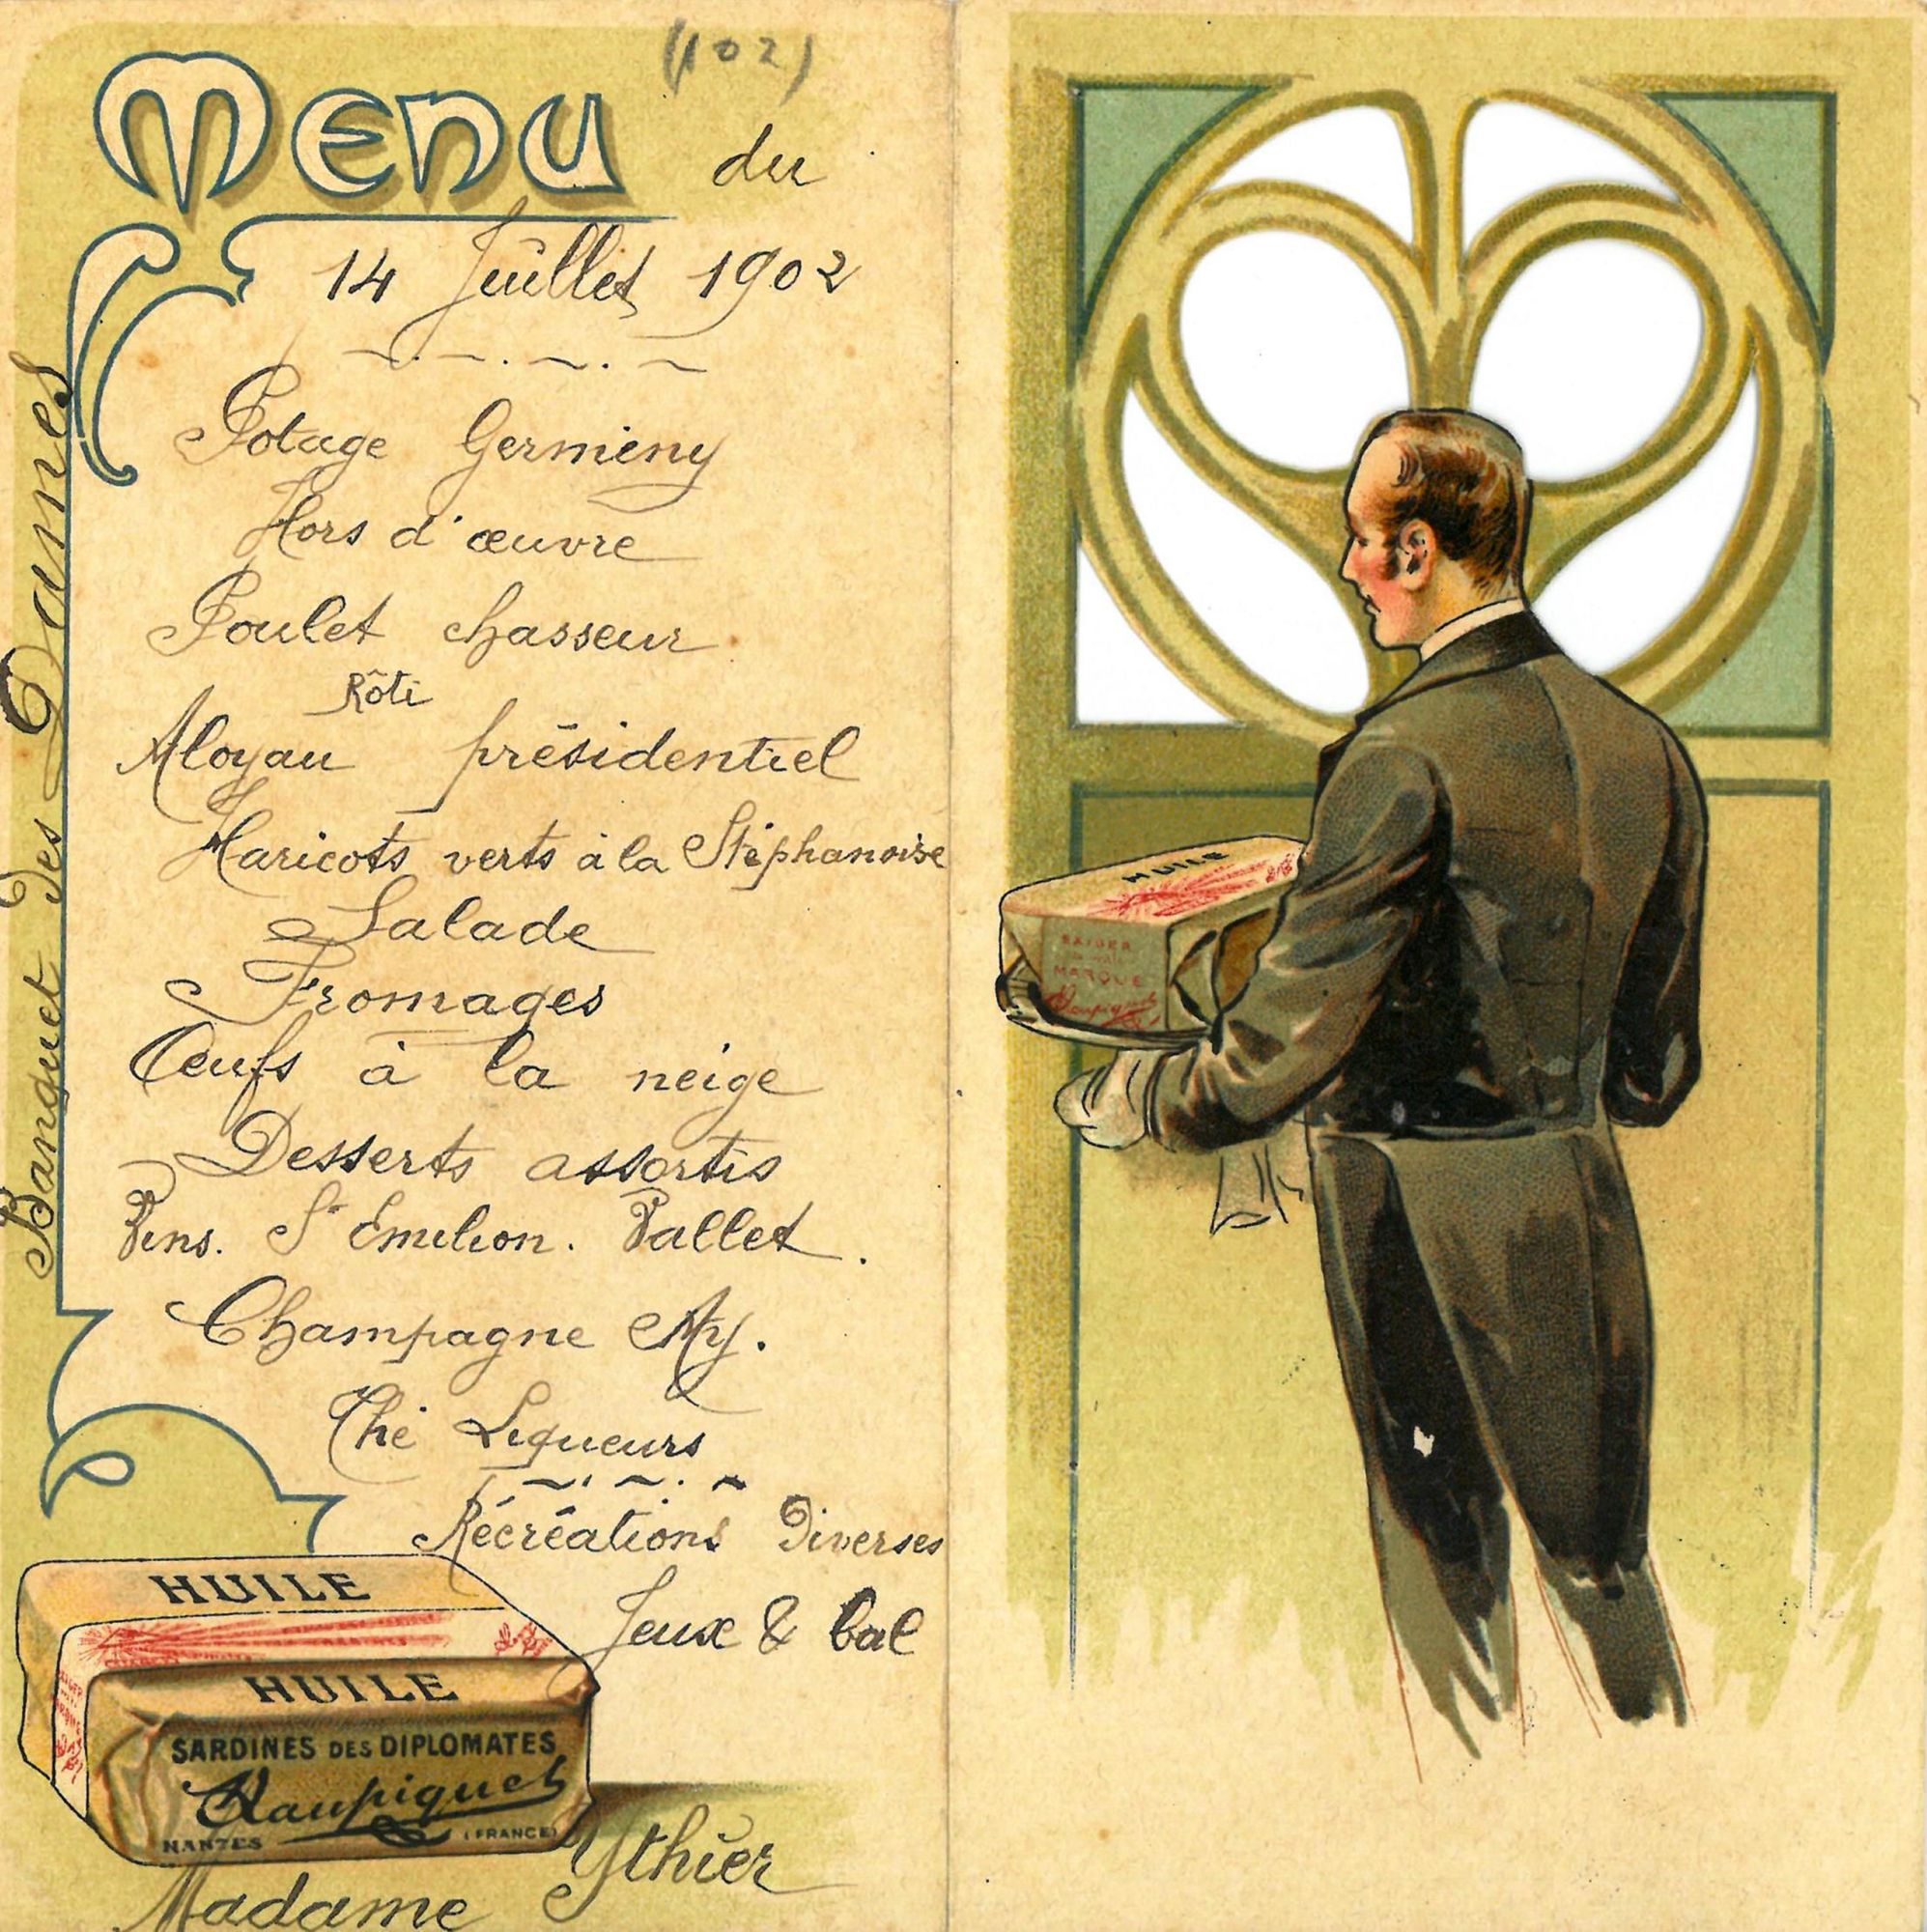 (102)
Menu du
14 Juillet 1902
Potage Germieny
Hors d'œuvre
Poulet chasseur
Rôti
Aloyau présidentiel
Haricots verts à la Stéphanoise
Salade
Fromages
Œufs à la neige
Desserts assortis
Vins. St Emilion. Vallet.
Champagne Ay.
Thé Liqueurs
Récréations Diverses
Jeux & bal
Banquet des Dames
HUILE
HUILE
SARDINES DES DIPLOMATES
Saupiquet
NANTES (FRANCE)
Madame Ythier
HUILE
EXIGER
MARQUE
Saupiquet